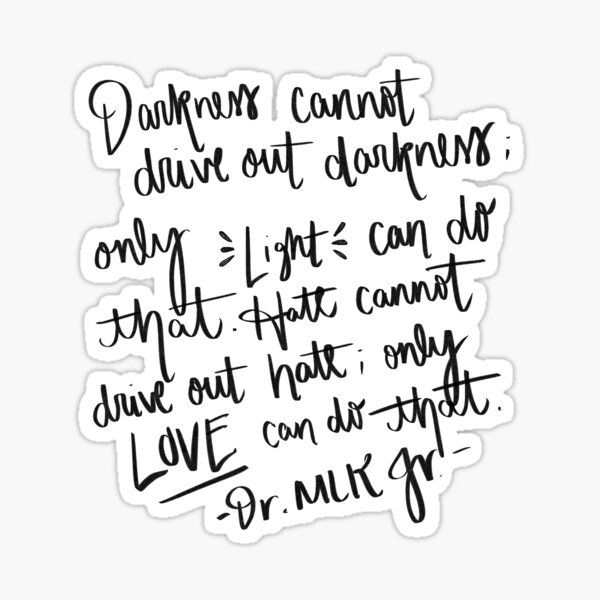 Darkness cannot
drive out darkness;
only Light can do
that. Hate cannot
drive out hate; only
LOVE can do that.
-Dr. MLK Jr.-